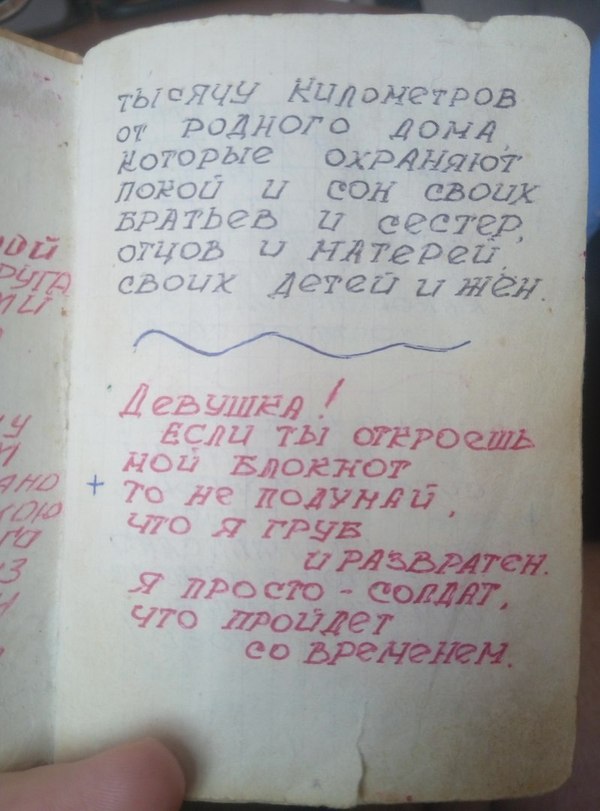 тысячу километров
от родного дома,
которые охраняют
покой и сон своих
братьев и сестер,
отцов и матерей,
своих детей и жён.
Девушка!
Если ты откроешь
мой блокнот
+ то не подумай,
что я груб
и развратен.
Я просто - солдат,
что пройдет
со временем.